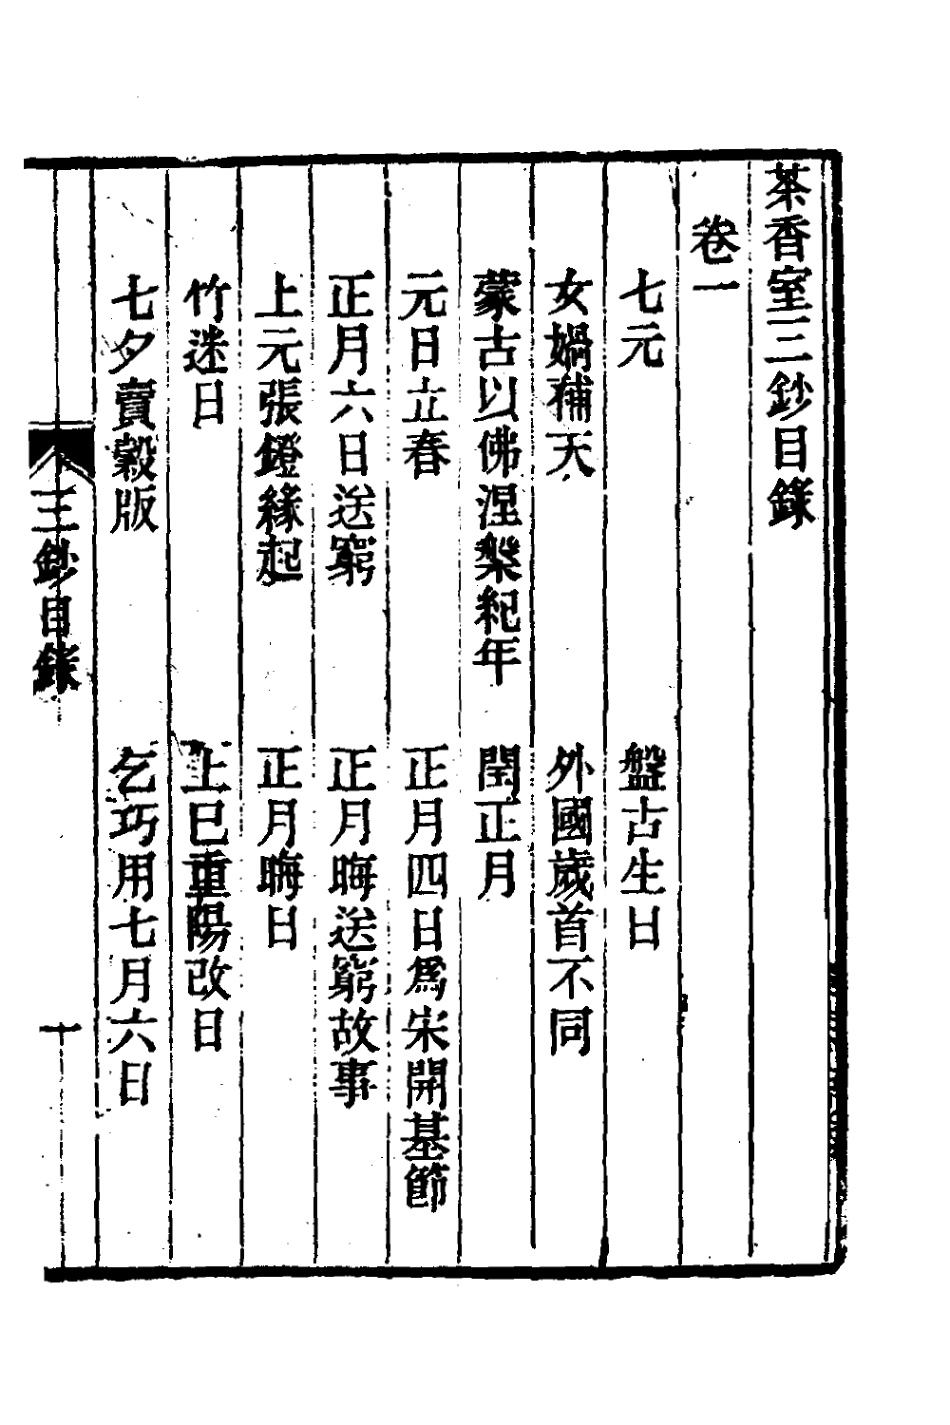 茶香室三鈔目錄
卷一
七元　盤古生日
女媧補天　外國歲首不同
蒙古以佛涅槃紀年　閏正月
元日立春　正月四日爲宋開基節
正月六日送窮　正月晦送窮故事
上元張鐙緣起　正月晦日
竹迷日　上巳重陽改日
七夕賣穀版　乞巧用七月六日
三鈔目錄　一